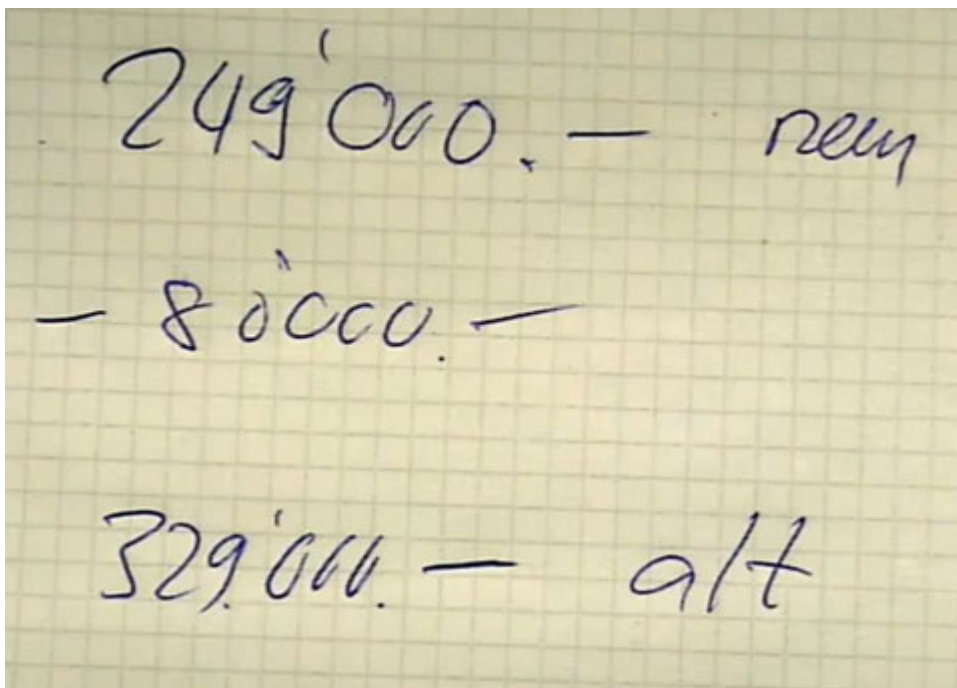 249'000.– neu
– 80'000.–
329'000.– alt